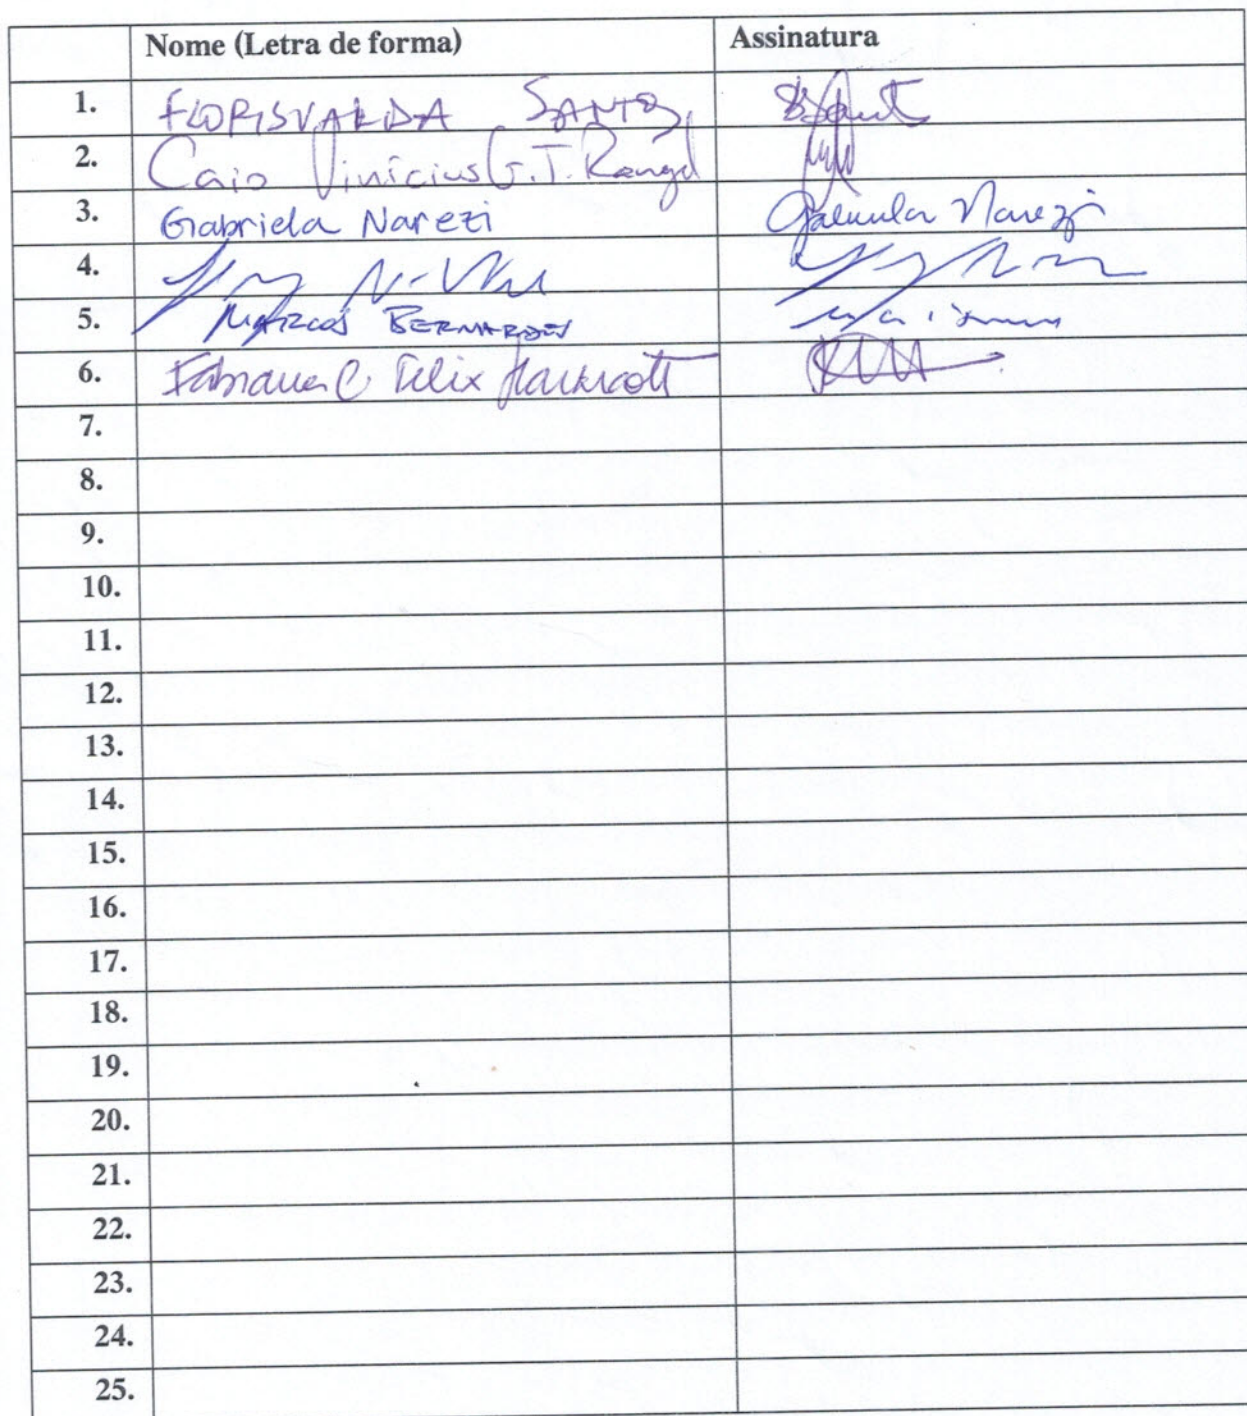 Nome (Letra de forma) Assinatura
1. FLORISVALDA SANTOS
2. Caio Vinícius G. T. Rangel
3. Gabriela Narezi Gabriela Narezi
4.
5. MARCOS BERNARDES
6. Fabiana C. Felix
7.
8.
9.
10.
11.
12.
13.
14.
15.
16.
17.
18.
19.
20.
21.
22.
23.
24.
25.